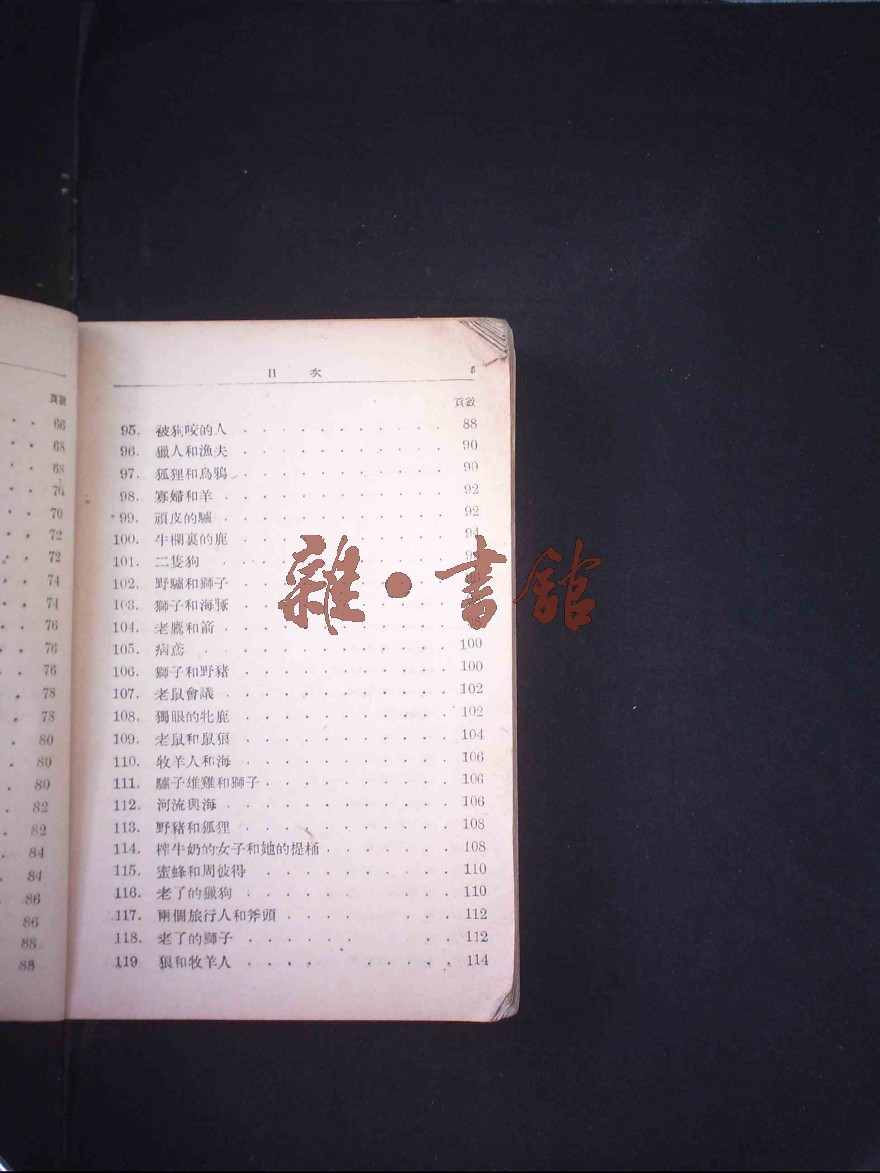 頁數
66
68
68
70
70
72
72
74
74
76
76
76
78
78
80
80
80
82
82
84
84
86
86
88
88
目 次 5
頁數
95. 被狗咬的人 88
96. 獵人和漁夫 90
97. 狐狸和烏鴉 90
98. 寡婦和羊 92
99. 頑皮的驢 92
100. 牛欄裏的鹿 94
101. 二隻狗
102. 野驢和獅子
103. 獅子和海豚
104. 老鷹和箭
105. 病鳶 100
106. 獅子和野豬 100
107. 老鼠會議 102
108. 獨眼的牝鹿 102
109. 老鼠和鼠狼 104
110. 牧羊人和海 106
111. 驢子雄雞和獅子 106
112. 河流與海 106
113. 野豬和狐狸 108
114. 榨牛奶的女子和她的提桶 108
115. 蜜蜂和周彼得 110
116. 老了的獵狗 110
117. 兩個旅行人和斧頭 112
118. 老了的獅子 112
119 狼和牧羊人 114
雜·書館